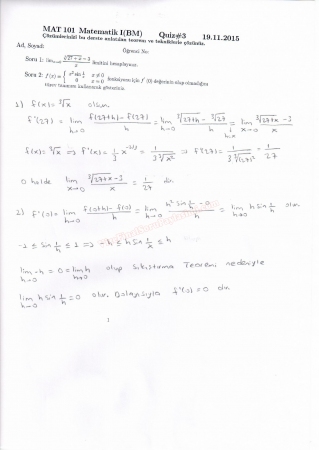 MAT 101 Matematik I(BM) Quiz#3 19.11.2015
Çözümlerinizi bu derste anlatılan teorem ve tekniklerle çözünüz.
Ad, Soyad: Öğrenci No:
Soru 1: lim_{x→0} (∛(27+x) − 3)/x limitini hesaplayınız.
Soru 2: f(x) = { x² sin 1/x, x ≠ 0; 0, x = 0 fonksiyonu için f′(0) değerinin olup olmadığını
türev tanımını kullanarak gösteriniz.
1) f(x) = ∛x olsun.
f'(27) = lim_{h→0} (f(27+h) − f(27))/h = lim_{h→0} (∛(27+h) − ∛27)/h = lim_{x→0} (∛(27+x) − 3)/x
f(x) = ∛x ⇒ f'(x) = 1/3 x^{-2/3} = 1/(3 ∛x²) ⇒ f'(27) = 1/(3 ∛(27)²) = 1/27
O halde lim_{x→0} (∛(27+x) − 3)/x = 1/27 dir.
2) f'(0) = lim_{h→0} (f(0+h) − f(0))/h = lim_{h→0} (h² sin 1/h − 0)/h = lim_{h→0} h sin 1/h olur
-1 ≤ sin 1/h ≤ 1 ⇒ -h ≤ h sin 1/x ≤ h
lim_{h→0} -h = 0 = lim_{h→0} h olup Sıkıştırma Teoremi nedeniyle
lim_{h→0} h sin 1/h = 0 olur. Dolayısıyla f'(0) = 0 dır.
1